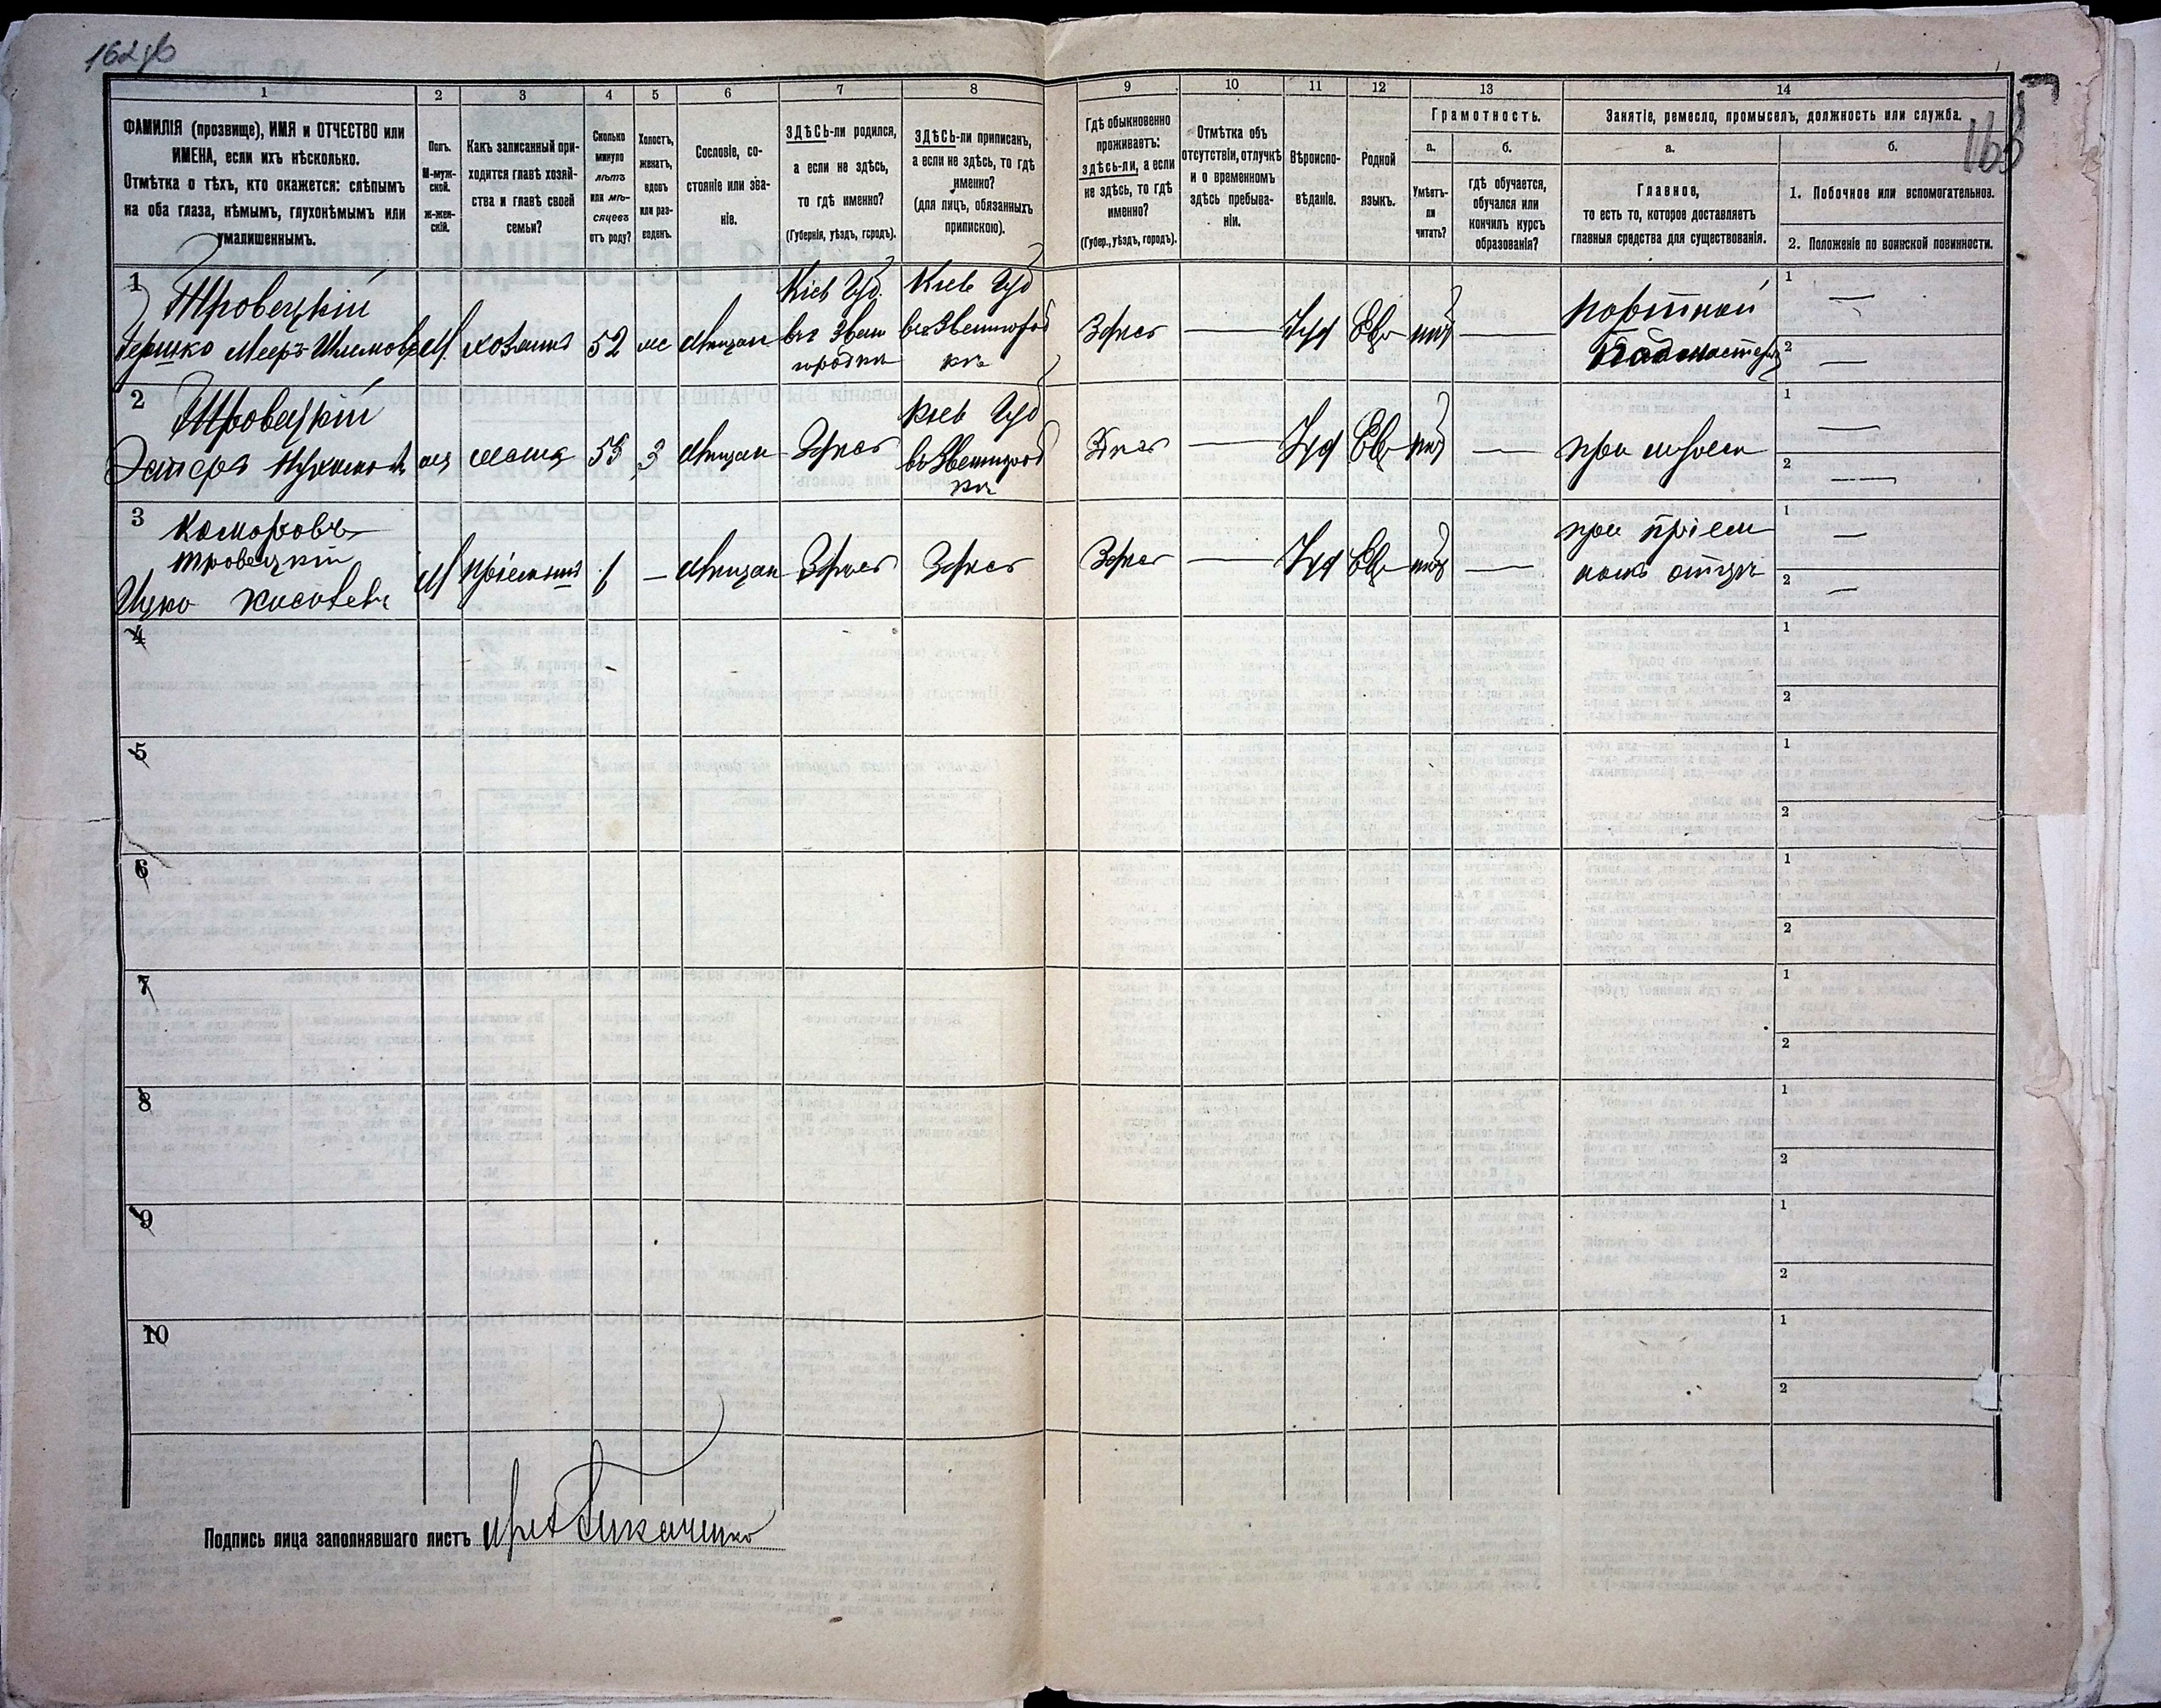 162об
163
1
2
3
4
5
6
7
8
9
10
11
12
13
14
ФАМИЛІЯ (прозвище), ИМЯ и ОТЧЕСТВО или
ИМЕНА, если ихъ нѣсколько.
Отмѣтка о тѣхъ, кто окажется: слѣпымъ
на оба глаза, нѣмымъ, глухонѣмымъ или
умалишеннымъ.
Полъ.
М-муж-
ской.
Ж-жен-
скій.
Какъ записанный при-
ходится главѣ хозяй-
ства и главѣ своей
семьи?
Сколько
минуло
лѣтъ
или мѣ-
сяцевъ
отъ роду?
Холостъ,
женатъ,
вдовъ
или раз-
веденъ.
Сословіе, со-
стояніе или зва-
ніе.
ЗДѢСЬ-ли родился,
а если не здѣсь,
то гдѣ именно?
(Губернія, уѣздъ, городъ).
ЗДѢСЬ-ли приписанъ,
а если не здѣсь, то гдѣ
именно?
(для лицъ, обязанныхъ
припискою).
Гдѣ обыкновенно
проживаетъ:
здѣсь-ли, а если
не здѣсь, то гдѣ
именно?
(Губер., уѣздъ, городъ).
Отмѣтка объ
отсутствіи, отлучкѣ
и о временномъ
здѣсь пребыва-
ніи.
Вѣроиспо-
вѣданіе.
Родной
языкъ.
Грамотность.
а.
Умѣетъ-
ли
читать?
б.
гдѣ обучается,
обучался или
кончилъ курсъ
образованія?
Занятіе, ремесло, промыселъ, должность или служба.
а.
Главное,
то есть то, которое доставляетъ
главныя средства для существованія.
б.
1. Побочное или вспомогательное.
2. Положеніе по воинской повинности.
1
Тровецкій
Гершко Мееръ Шлемовъ М хозяинъ 52 же мѣщан
Кіев Губ
въ Звени
городки
Кіев Губ
въ Звенигород
кѣ
Здѣсь Іуд Евр нѣт
Подмастерь
1
2
2
Тровецкій
Эстеръ жен жена 55 З мѣщан Здѣсь
Кіев Губ
въ Звенигород
кѣ
Здѣсь Іуд Евр нѣт при мужѣ
1
2
3
Коморовъ
Тровецкій
Ицко М пріемышъ 1 мѣщан Здѣсь Здѣсь Здѣсь Іуд Евр нѣт
при пріем
номъ отцѣ
1
2
4
1
2
5
1
2
6
1
2
7
1
2
8
1
2
9
1
2
10
1
2
Подпись лица заполнявшаго листъ Ткаченко